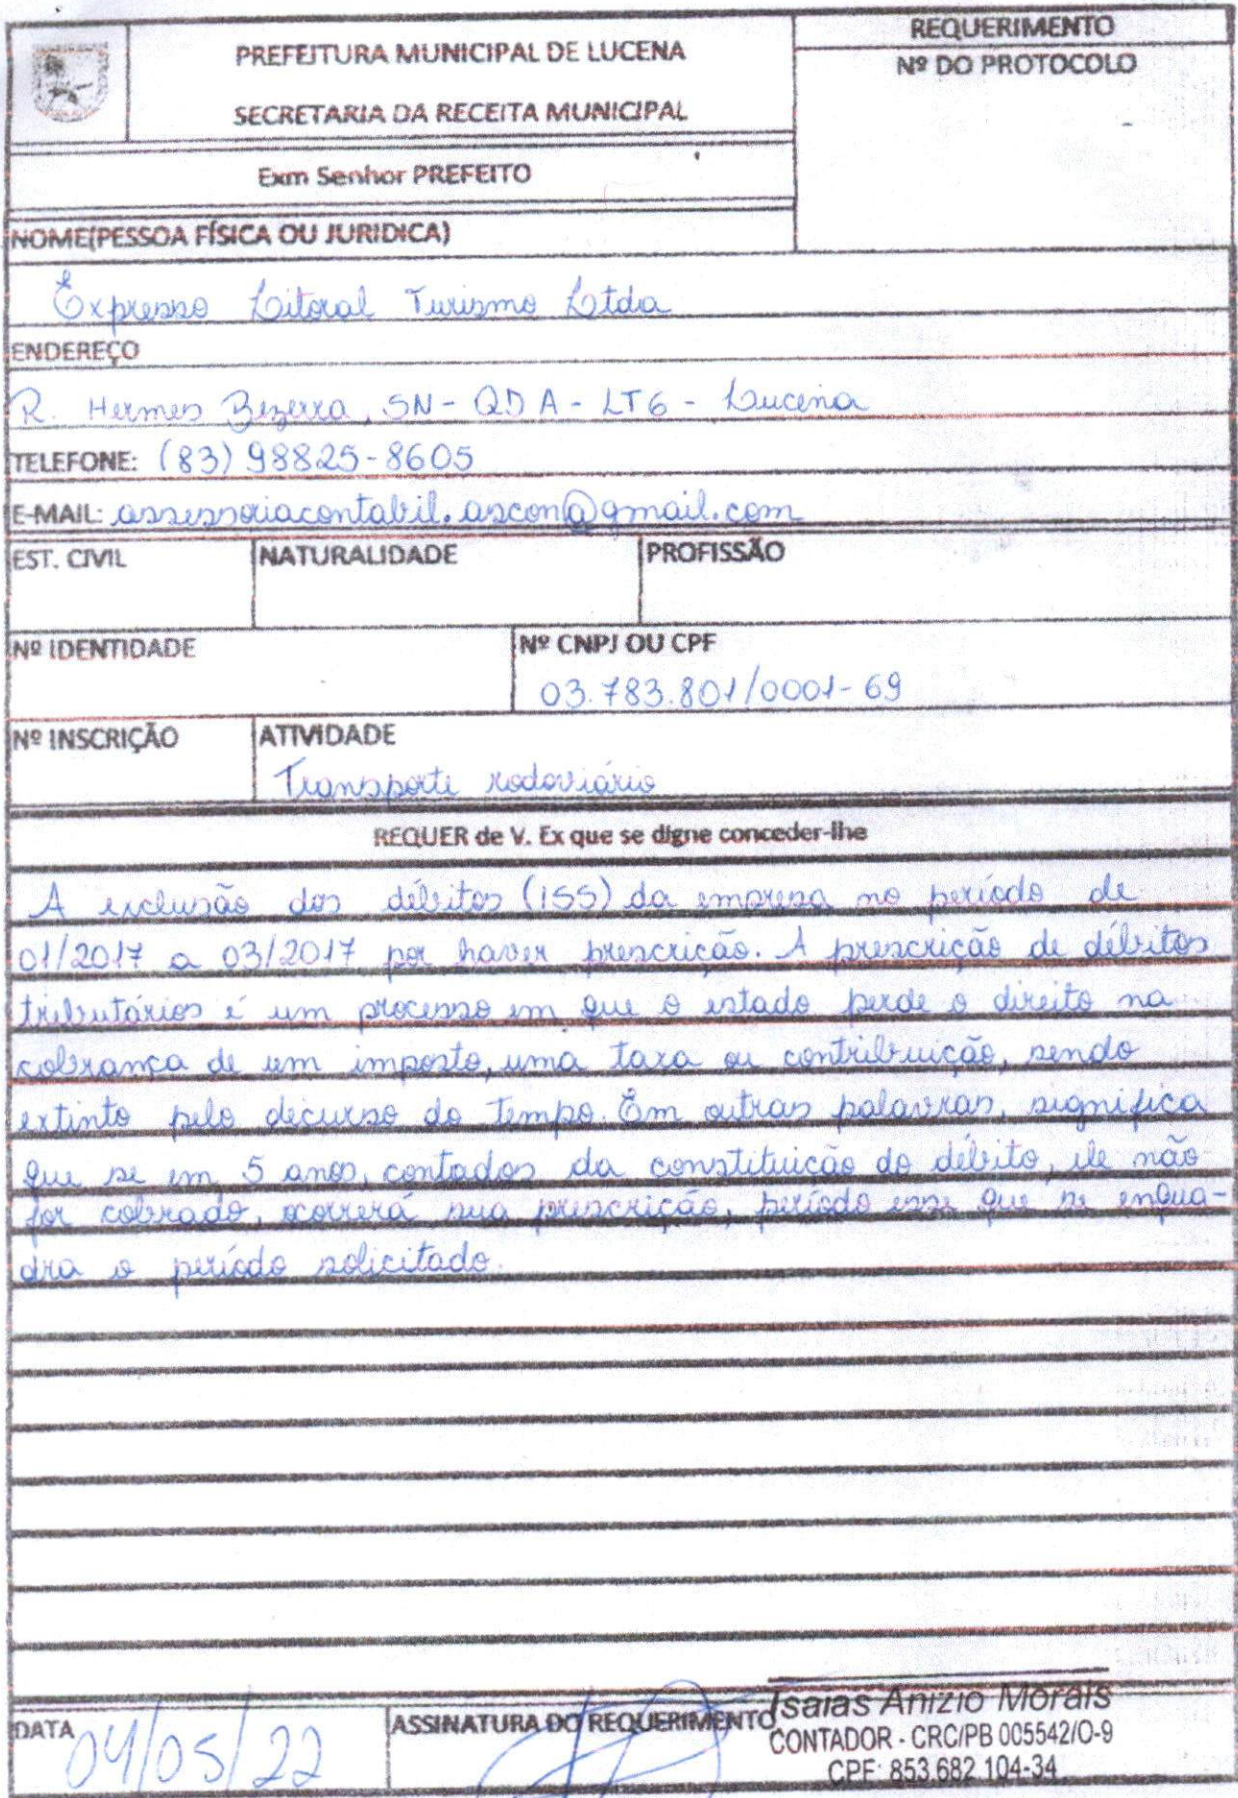 REQUERIMENTO
PREFEITURA MUNICIPAL DE LUCENA
Nº DO PROTOCOLO
SECRETARIA DA RECEITA MUNICIPAL
Exm Senhor PREFEITO
NOME(PESSOA FÍSICA OU JURIDICA)
Expresso Litoral Turismo Ltda
ENDEREÇO
R. Hermes Bezerra, SN - QD A - LT 6 - Lucena
TELEFONE: (83) 98825-8605
E-MAIL: assessoriacontabil.ascon@gmail.com
EST. CIVIL NATURALIDADE PROFISSÃO
Nº IDENTIDADE Nº CNPJ OU CPF
03.783.801/0001-69
Nº INSCRIÇÃO ATIVIDADE
Transporte rodoviário
REQUER de V. Ex que se digne conceder-lhe
A exclusão dos débitos (ISS) da empresa no período de
01/2017 a 03/2017 por haver prescrição. A prescrição de débitos
tributários é um processo em que o estado perde o direito na
cobrança de um imposto, uma taxa ou contribuição, sendo
extinto pelo decurso do tempo. Em outras palavras, significa
que se em 5 anos, contados da constituição do débito, ele não
for cobrado, ocorrerá sua prescrição, período esse que se enqua-
dra o período solicitado.
DATA 04/05/22 ASSINATURA DO REQUERIMENTO
Isaias Anizio Morais
CONTADOR - CRC/PB 005542/O-9
CPF: 853.682.104-34